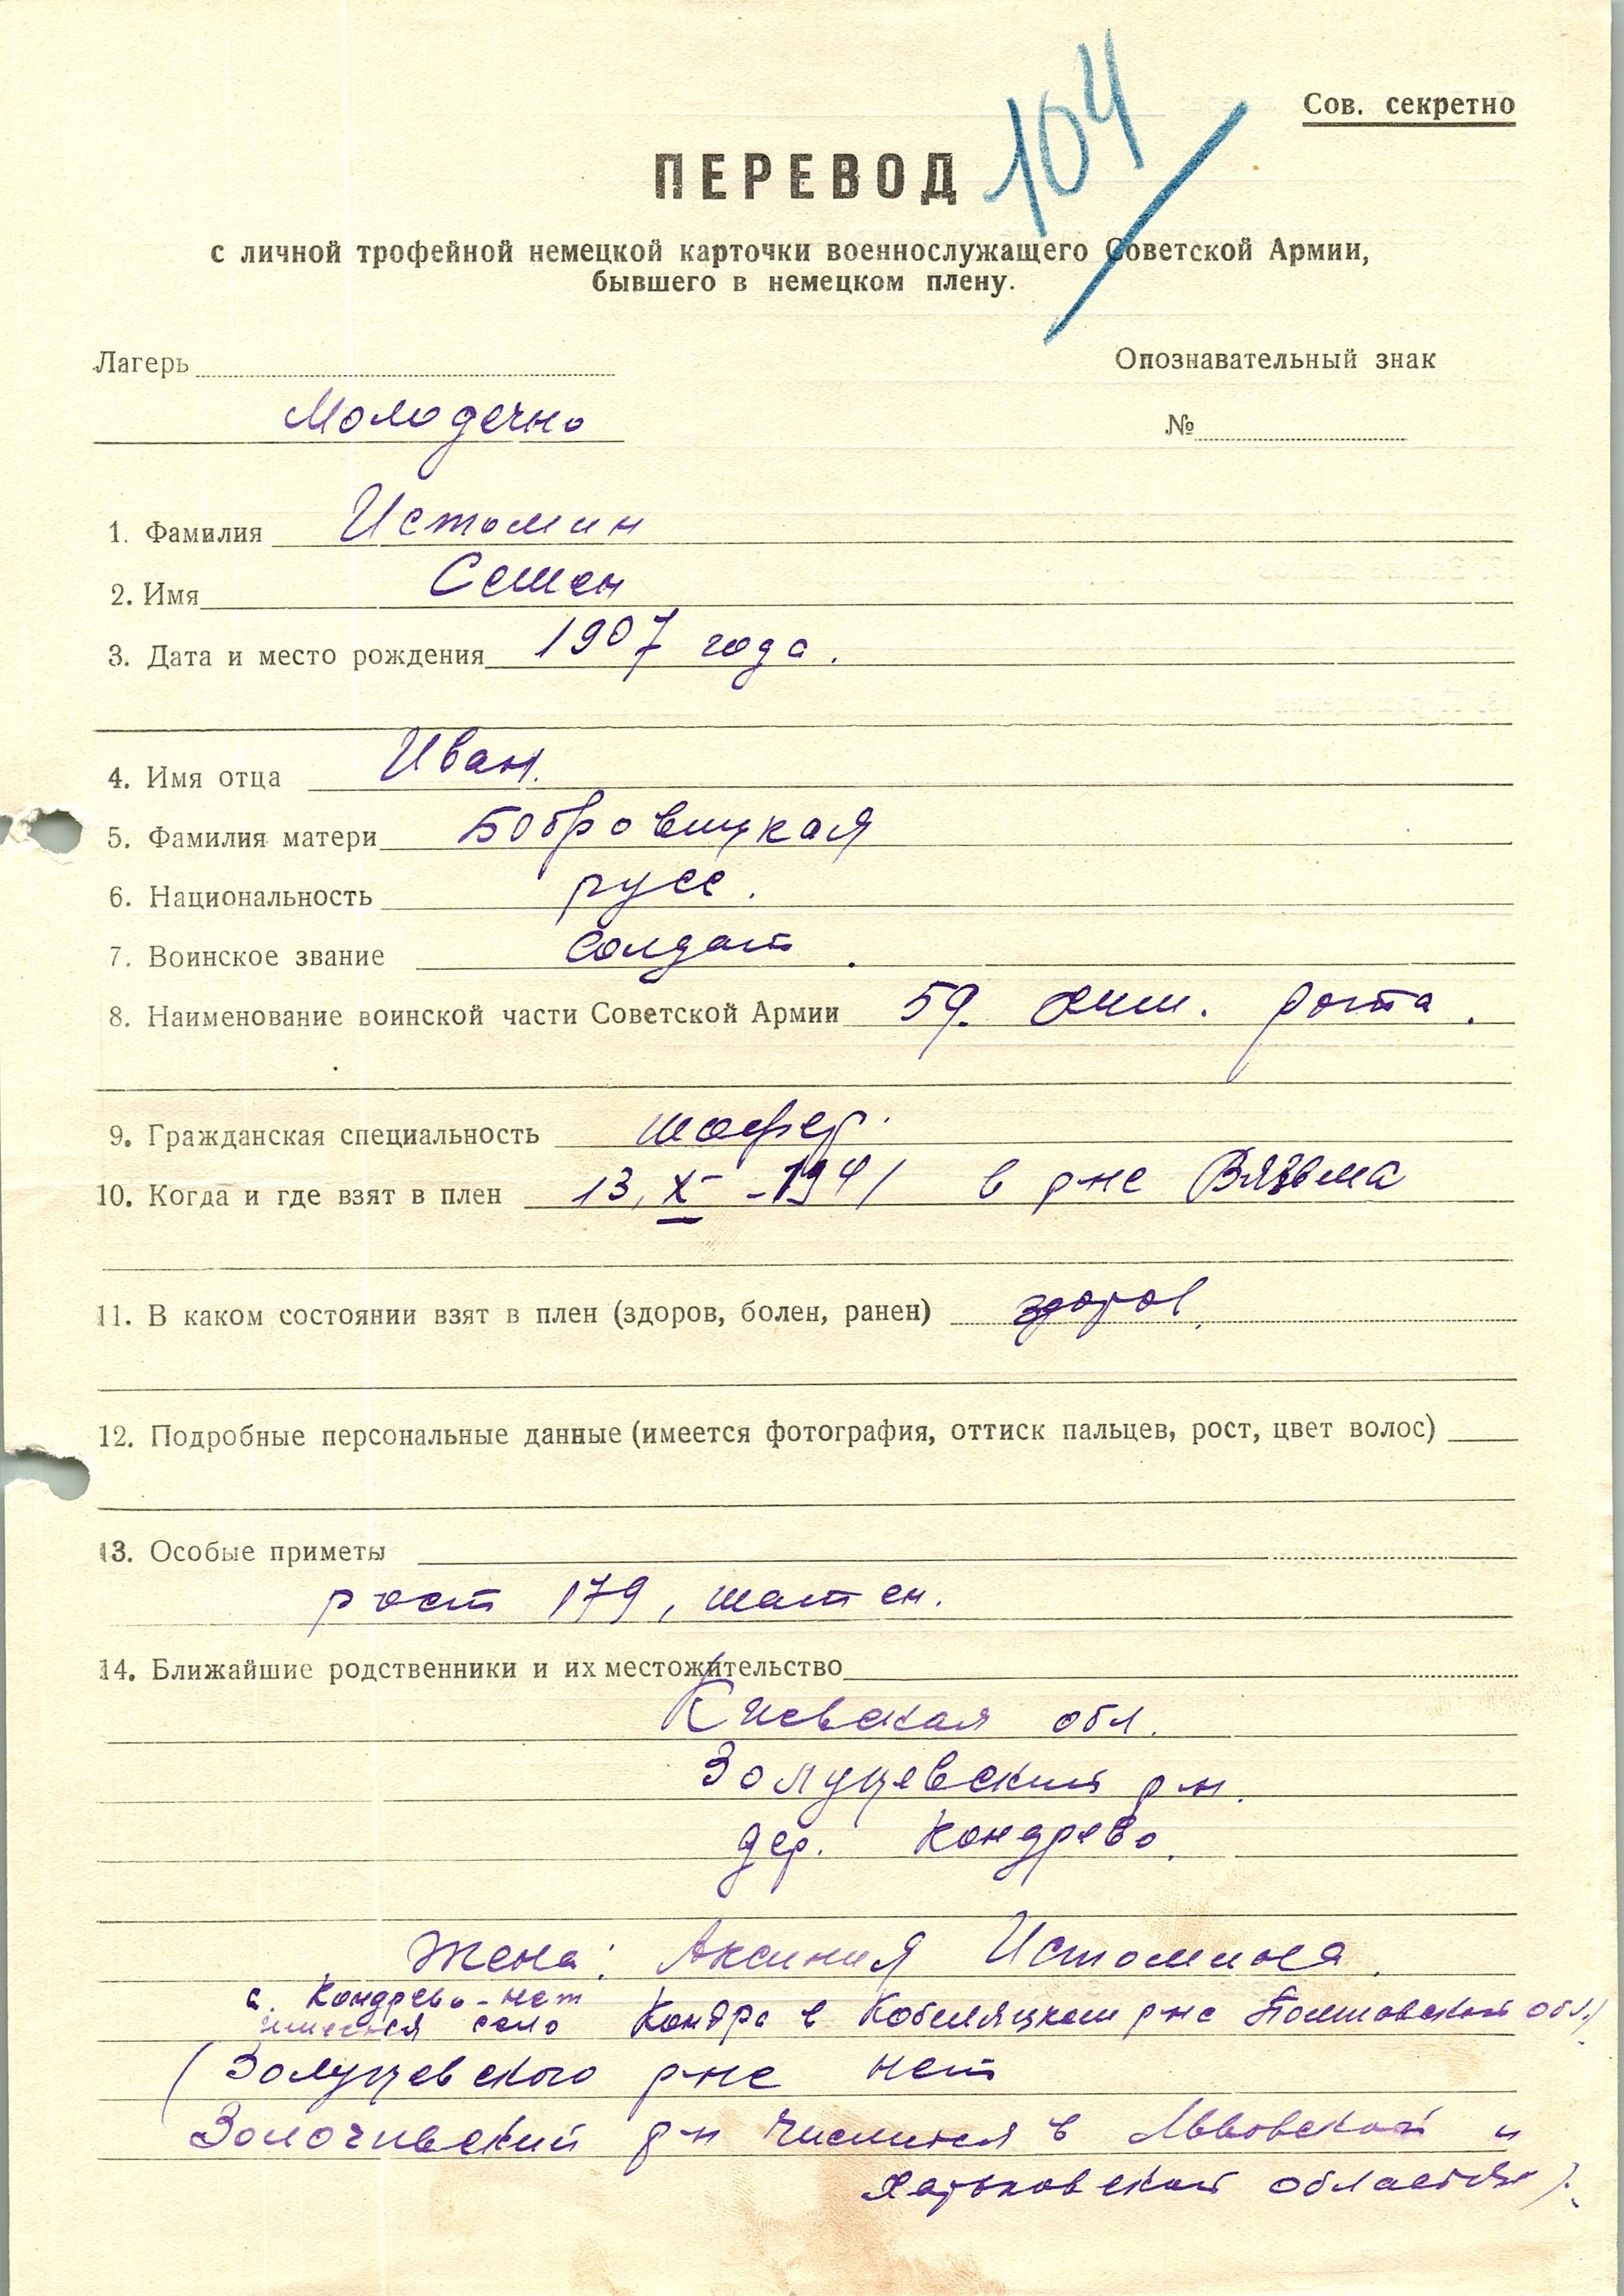 104
Сов. секретно
ПЕРЕВОД
с личной трофейной немецкой карточки военнослужащего Советской Армии,
бывшего в немецком плену.
Лагерь
Опознавательный знак
Молодечно
№
1. Фамилия Истомин
2. Имя Семен
3. Дата и место рождения 1907 года.
4. Имя отца Иван.
5. Фамилия матери Бобровицкая
6. Национальность русс.
7. Воинское звание солдат.
8. Наименование воинской части Советской Армии 59. рота.
9. Гражданская специальность шофер.
10. Когда и где взят в плен 13, X - 1941 в р-не Вязьма
11. В каком состоянии взят в плен (здоров, болен, ранен) здоров.
12. Подробные персональные данные (имеется фотография, оттиск пальцев, рост, цвет волос)
13. Особые приметы
рост 179, шатен.
14. Ближайшие родственники и их местожительство
Киевская обл.
Золуцевский р-н.
дер. Кондрево.
Жена: Аксиния Истомина.
с. Кондрево - нет
имеется село Кондра в Кобеляцком р-не Полтавской обл.)
(Золуцевского р-не нет
Золочивский р-н числится в Львовской и
Харьковской областях).